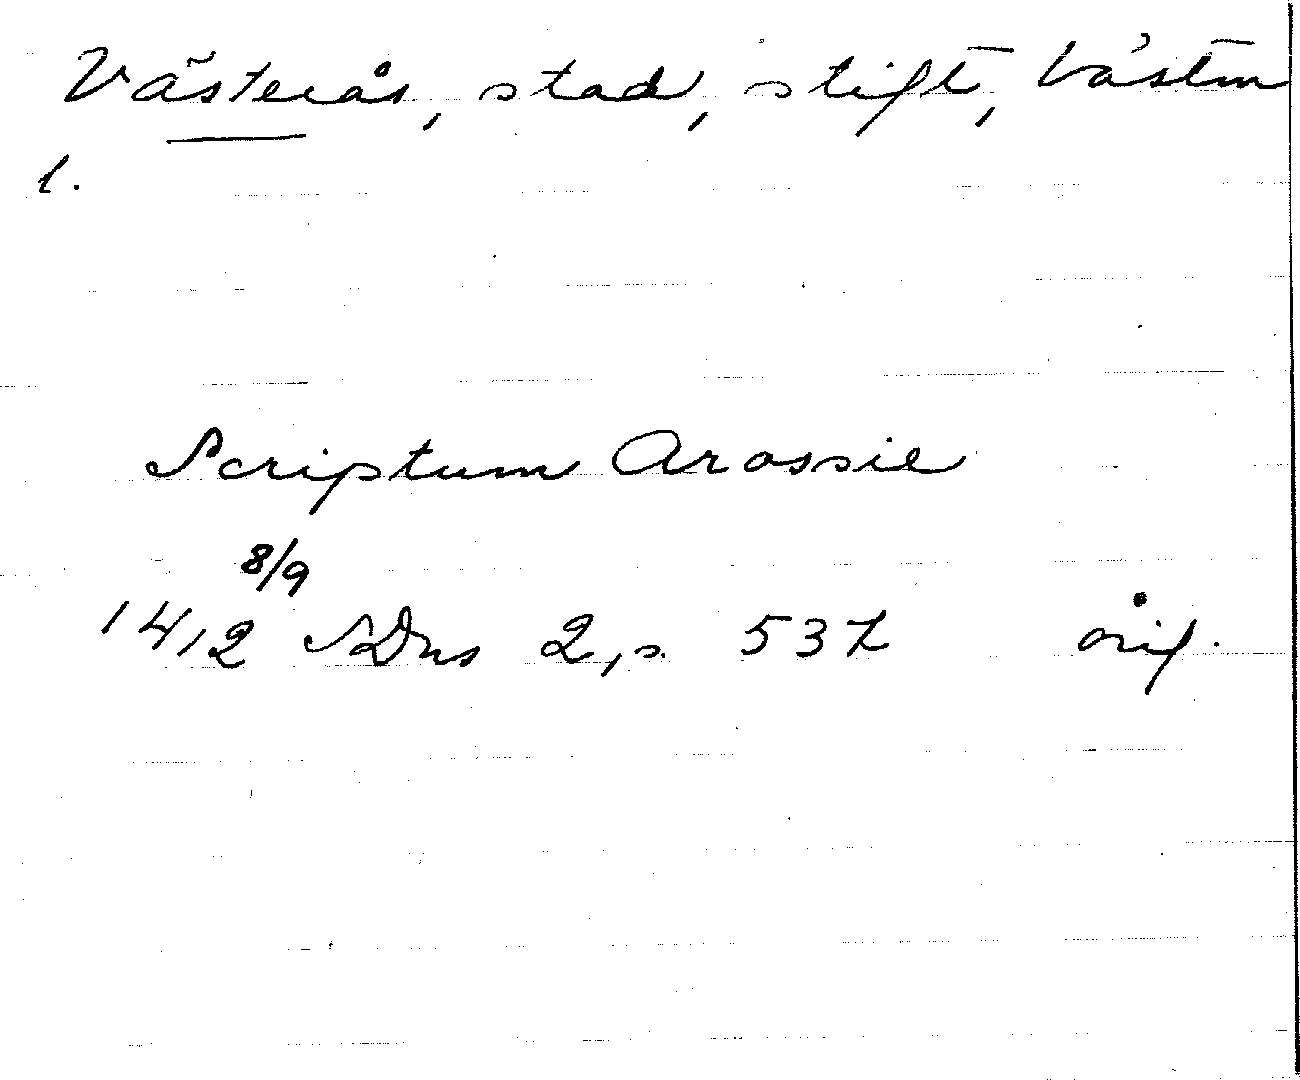 Västerås, stad, stift, Västm
l.
Scriptum Arossie
8/9
1412 SDns 2, s. 537 orig.